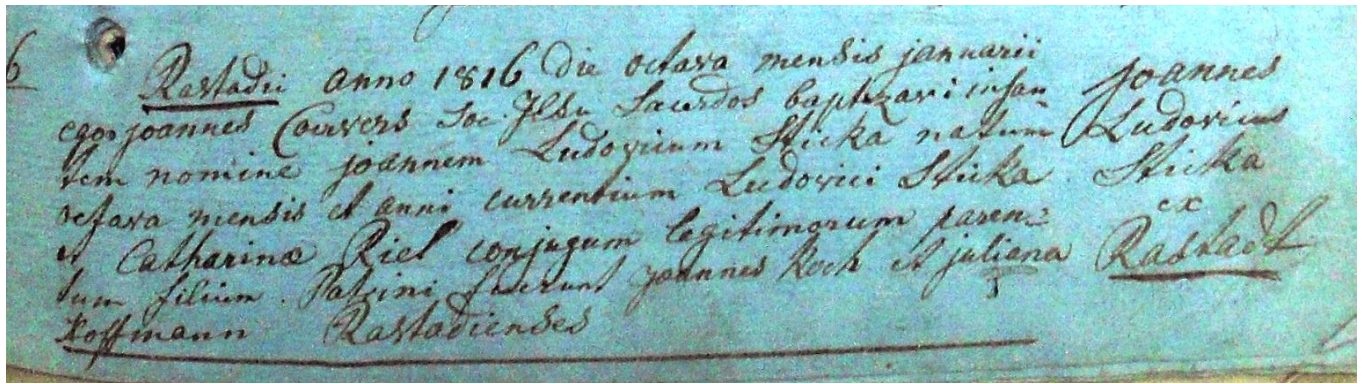 6
Rastadii anno 1816 die octava mensis januarii
ego joannes Couvers Soc. Jesu Sacerdos baptizavi infan-
tem nomine joannem Ludovicum Sticka natum
octava mensis et anni currentium Ludovici Sticka
et Catharinæ Riel conjugum legitimorum paren-
tum filium. Patrini fuerunt joannes Koch et juliana
Hoffmann Rastadienses
Joannes
Ludovicus
Sticka
ex
Rastadt